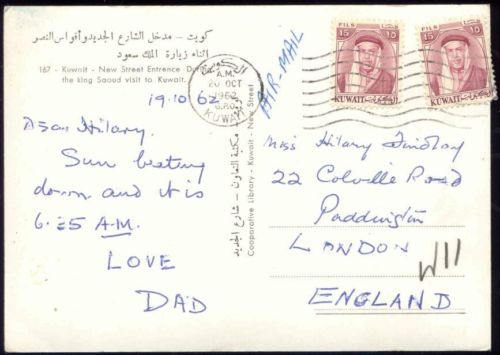 كويت - مدخل الشارع الجديد وأقواس النصر
اثناء زيارة الملك سعود
167 - Kuwait - New Street Entrance During
the king Saoud visit to Kuwait.
19.10.62
Dear Hilary,
Sun beating
down and it is
6.25 A.M.
LOVE
DAD
الكويت
A.M.
20 OCT
1962
G.P.O.
KUWAIT
AIR-MAIL
FILS
15 15
KUWAIT الكويت
FILS
15 15
KUWAIT الكويت
مكتبة التعاون - شارع الجديد - كويت
Cooperative Library - Kuwait - New Street
Miss Hilary Findlay
22 Colville Road
Paddington
LONDON
W11
ENGLAND